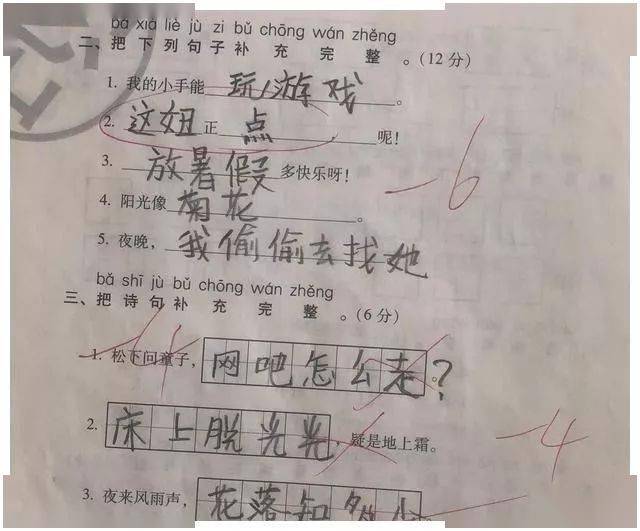 bǎ xià liè jù zi bǔ chōng wán zhěng
二、把下列句子补充完整。(12分)
1. 我的小手能玩游戏。
2. 这妞正点呢!
3. 放暑假多快乐呀!
4. 阳光像菊花。
5. 夜晚,我偷偷去找她
-6
bǎ shī jù bǔ chōng wán zhěng
三、把诗句补充完整。(6分)
1. 松下问童子,网吧怎么走?
2. 床上脱光光,疑是地上霜。
-4
3. 夜来风雨声,花落知多少